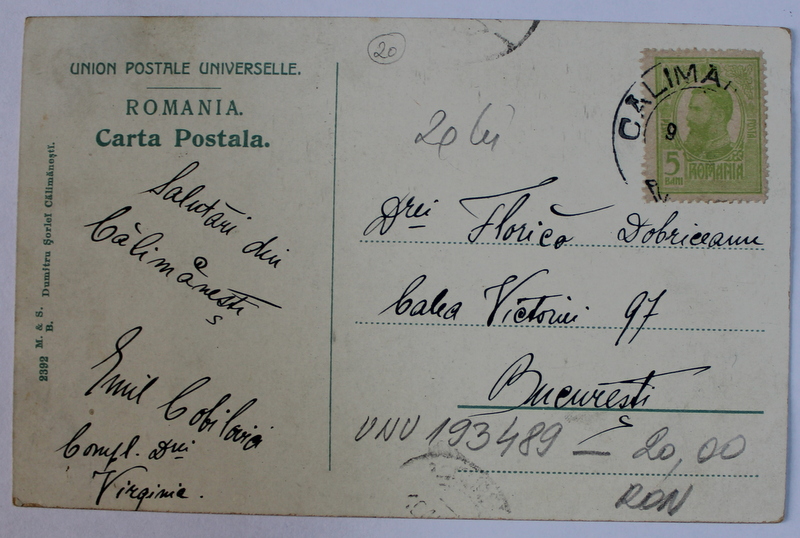 20
UNION POSTALE UNIVERSELLE.
ROMANIA.
Carta Postala.
2392 M. & S. B. Dumitru Șorleĭ Călimăneștĭ.
Salutări din
Călimănești
Emil
Compl. Drei
Virginia.
20 lei
CALIMA
9
5
BANI
ROMANIA
Drei Florica Dobriceanu
Calea Victoriei 97
București
UNU 193489 — 20,00
RON